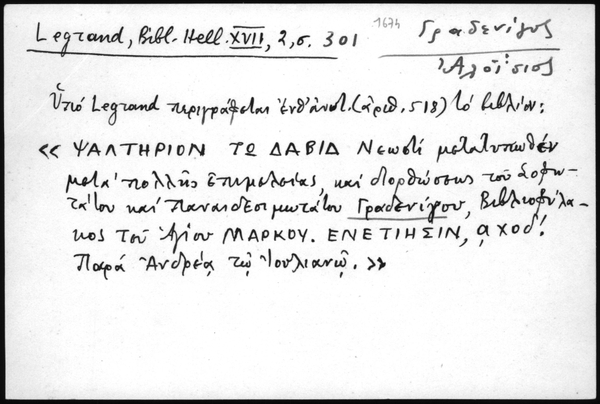 Legrand, Bibl. Hell. XVII, 2, σ. 301
1674
Γραδενίγος
Ἀλοΐσιος
Ὑπό Legrand περιγράφεται ἐνθ' ἀνωτ. (ἀριθ. 518) τό βιβλίον:
« ΨΑΛΤΗΡΙΟΝ ΤΩ ΔΑΒΙΔ Νεωστί μετατυπωθέν
μετά πολλῆς ἐπιμελείας, καί διορθώσεως τοῦ Σοφω-
τάτου καί Παναιδεσιμωτάτου Γραδενίγου, Βιβλιοφύλα-
κος τοῦ Ἁγίου ΜΑΡΚΟΥ. ΕΝΕΤΙΗΣΙΝ, ͵αχοδ'.
Παρά Ἀνδρέᾳ τῷ Ἰουλιανῷ. »